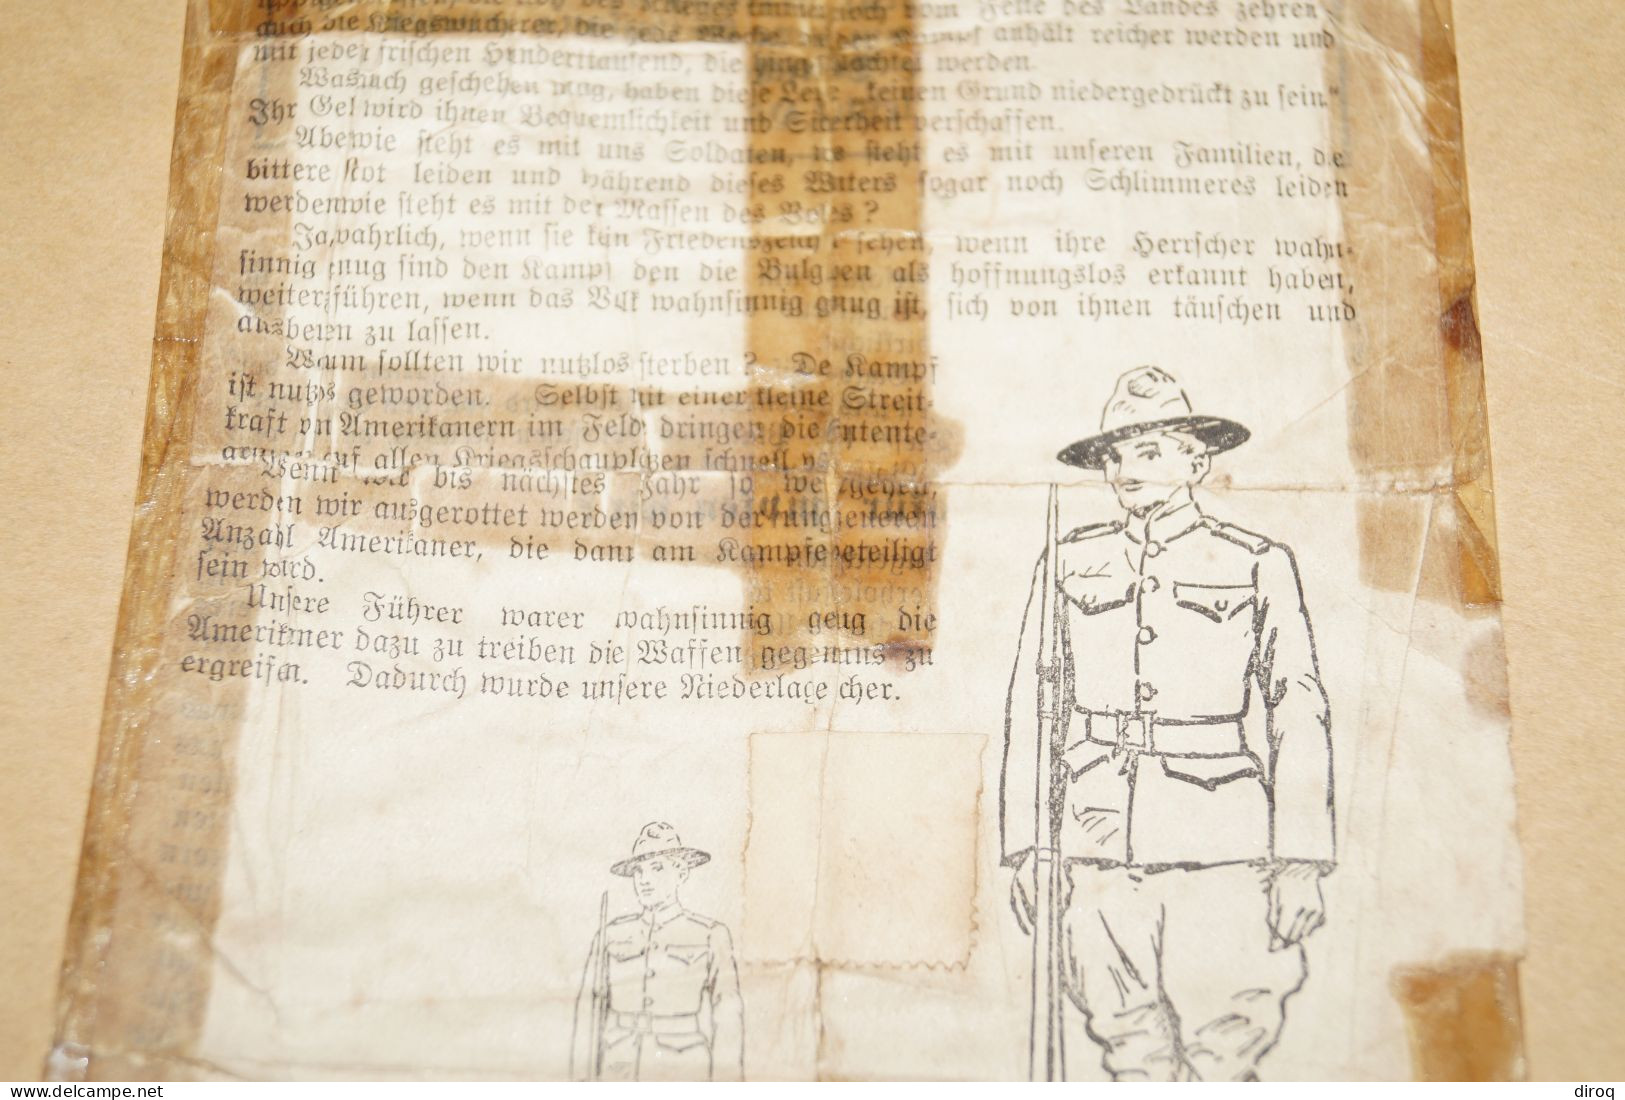 die noch des Krieges immer noch vom Fette des Landes zehren
auch die Kriegswucherer, die jede der Kampf anhält reicher werden und
mit jeder frischen Hunderttausend, die werden.
Was uch geschehen mag, haben diese „keinen Grund niedergedrückt zu sein.“
Ihr Gel wird ihnen Bequemlichkeit und verschaffen.
Abe wie steht es mit uns Soldaten, steht es mit unseren Familien, die
bittere Not leiden und während dieses Winters sogar noch Schlimmeres leiden
werden wie steht es mit der Massen des Volkes ?
Ja, wahrlich, wenn sie kein Friedenszeichen sehen, wenn ihre Herrscher wahn-
sinnig genug sind den Kampf den die Bulgaren als hoffnungslos erkannt haben,
weiterzuführen, wenn das Volk wahnsinnig genug ist, sich von ihnen täuschen und
ausbeuten zu lassen.
Warum sollten wir nutzlos sterben ? Der Kampf
ist nutzlos geworden. Selbst mit einer kleinen Streit-
kraft von Amerikanern im Feld dringen die Entente-
armeen auf allen Kriegsschauplätzen schnell
Wenn bis nächstes Jahr so
werden wir ausgerottet werden von der ungeheueren
Anzahl Amerikaner, die dann am Kampfe beteiligt
sein wird.
Unsere Führer waren wahnsinnig genug die
Amerikaner dazu zu treiben die Waffen gegen uns zu
ergreifen. Dadurch wurde unsere Niederlage sicher.
diroq